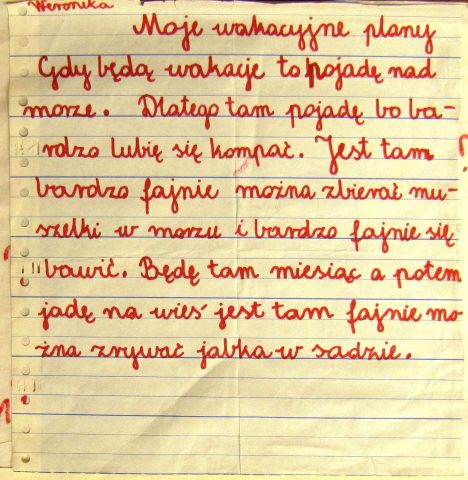 Weronika
Moje wakacyjne plany
Gdy będą wakacje to pojadę nad
morze. Dlatego tam pojadę bo ba-
rdzo lubię się kompać. Jest tam
bardzo fajnie można zbierać mu-
szelki w morzu i bardzo fajnie się
bawić. Będę tam miesiąc a potem
jadę na wieś jest tam fajnie mo-
żna zrywać jabka w sadzie.